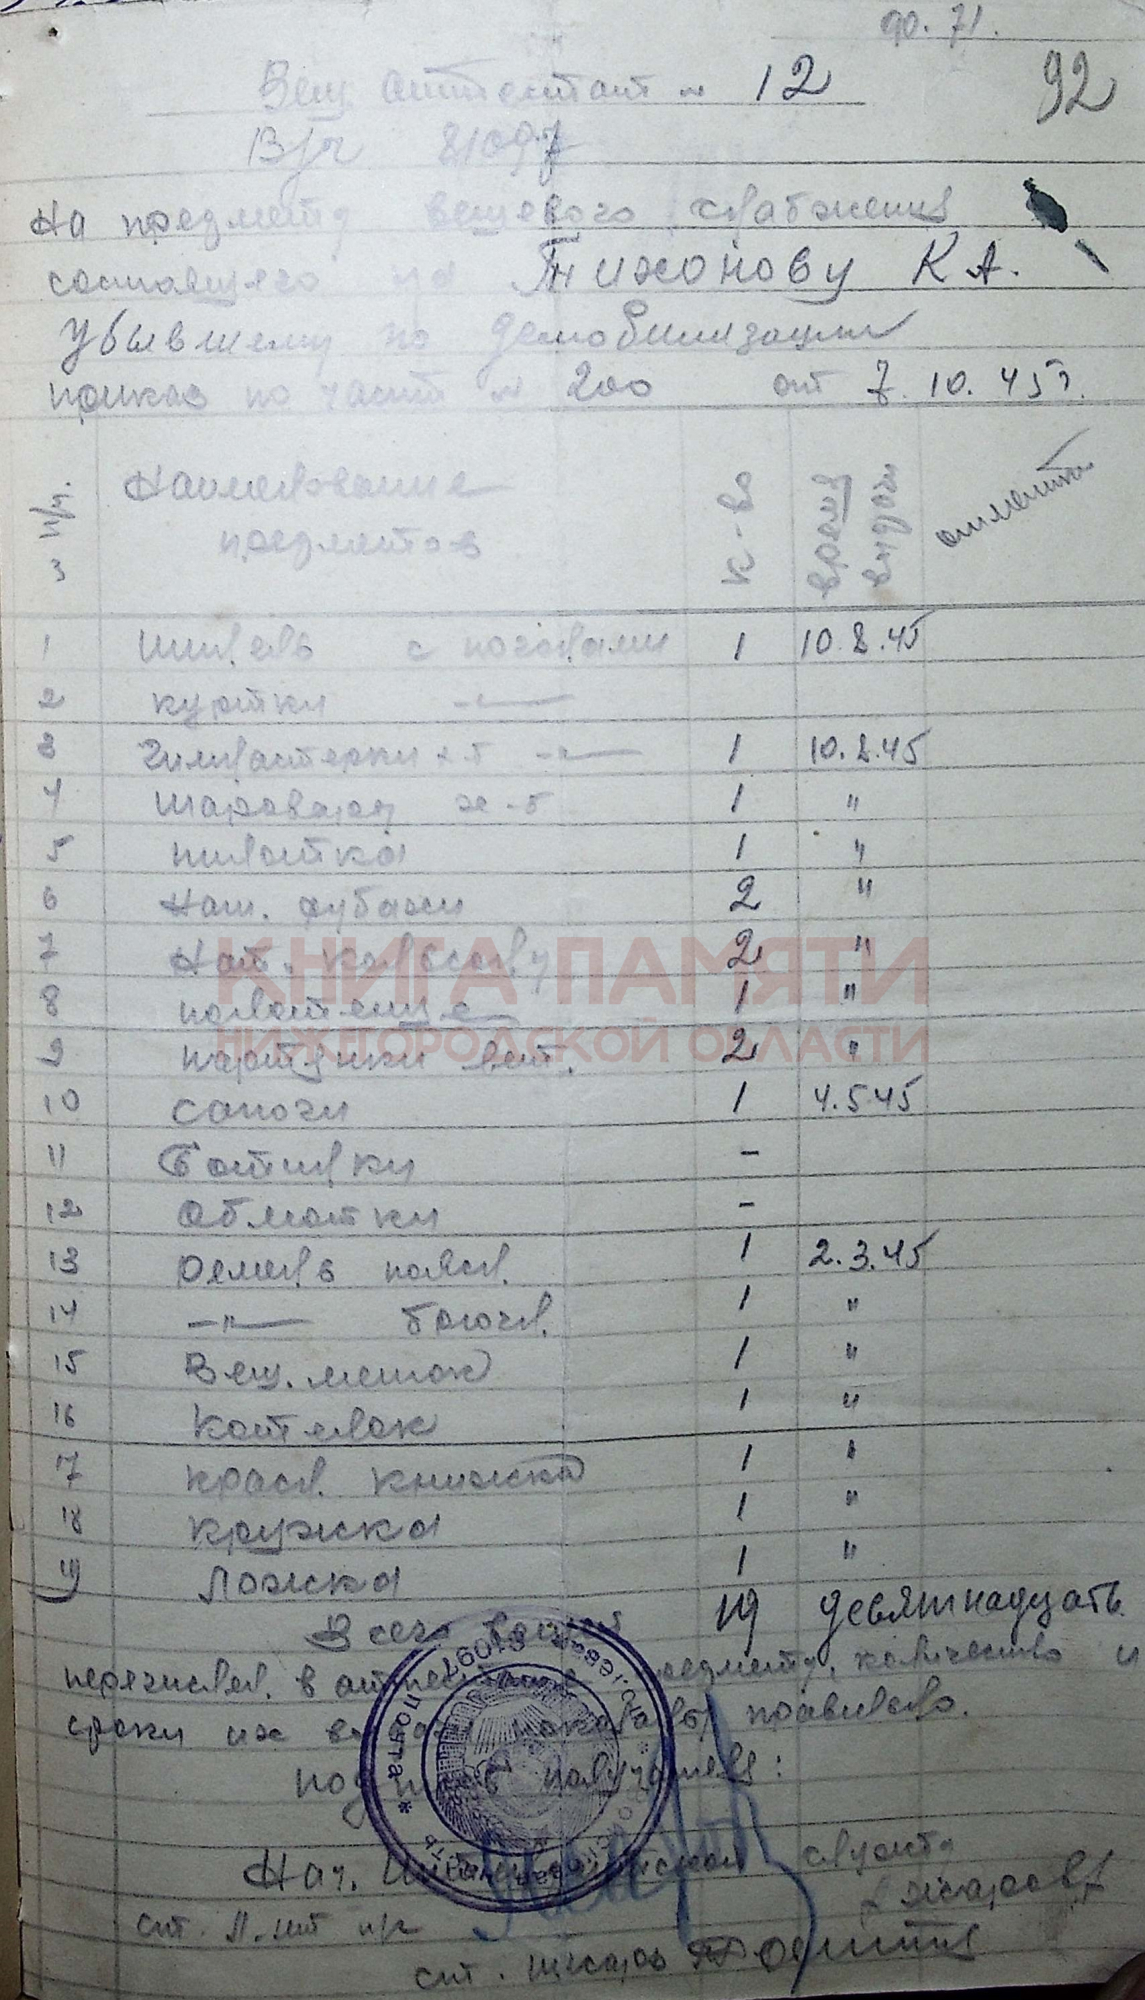 ф. 71.
92
Вещ. аттестат № 12
В/ч 81097
На предметы вещевого снабжения
состоящего на Тихонову К А.
убывшему по демобилизации
приказ по части № 200 от 7. 10. 45г.
№ п/п. Наименование предметов к-во время выдачи отметка
1 Шинель с погонами 1 10.8.45
2 куртки —"—
3 Гимнастерки х-б —"— 1 10.8.45
4 шаровары х-б 1 "
5 пилотка 1 "
6 Нат. рубахи 2 "
7 Нат. кальсоны 2 "
8 полотенце 1 "
9 портянки лет. 2 "
10 сапоги 1 4.5.45
11 Ботинки -
12 Обмотки -
13 Ремень поясн. 1 2.3.45
14 —"— брючн. 1 "
15 Вещ. мешок 1 "
16 Котелок 1 "
17 красн. книжка 1 "
18 кружка 1 "
19 Ложка 1 "
Всего вещей 19 девятнадцать
перечислен. в аттестате предметы, количество и
сроки их выдачи показаны правильно.
подпись получателя:
Нач. Интендантской службы
ст. л-нт и/с Жаров
ст. писарь
КНИГА ПАМЯТИ
НИЖЕГОРОДСКОЙ ОБЛАСТИ
* Полевая почта * 81097